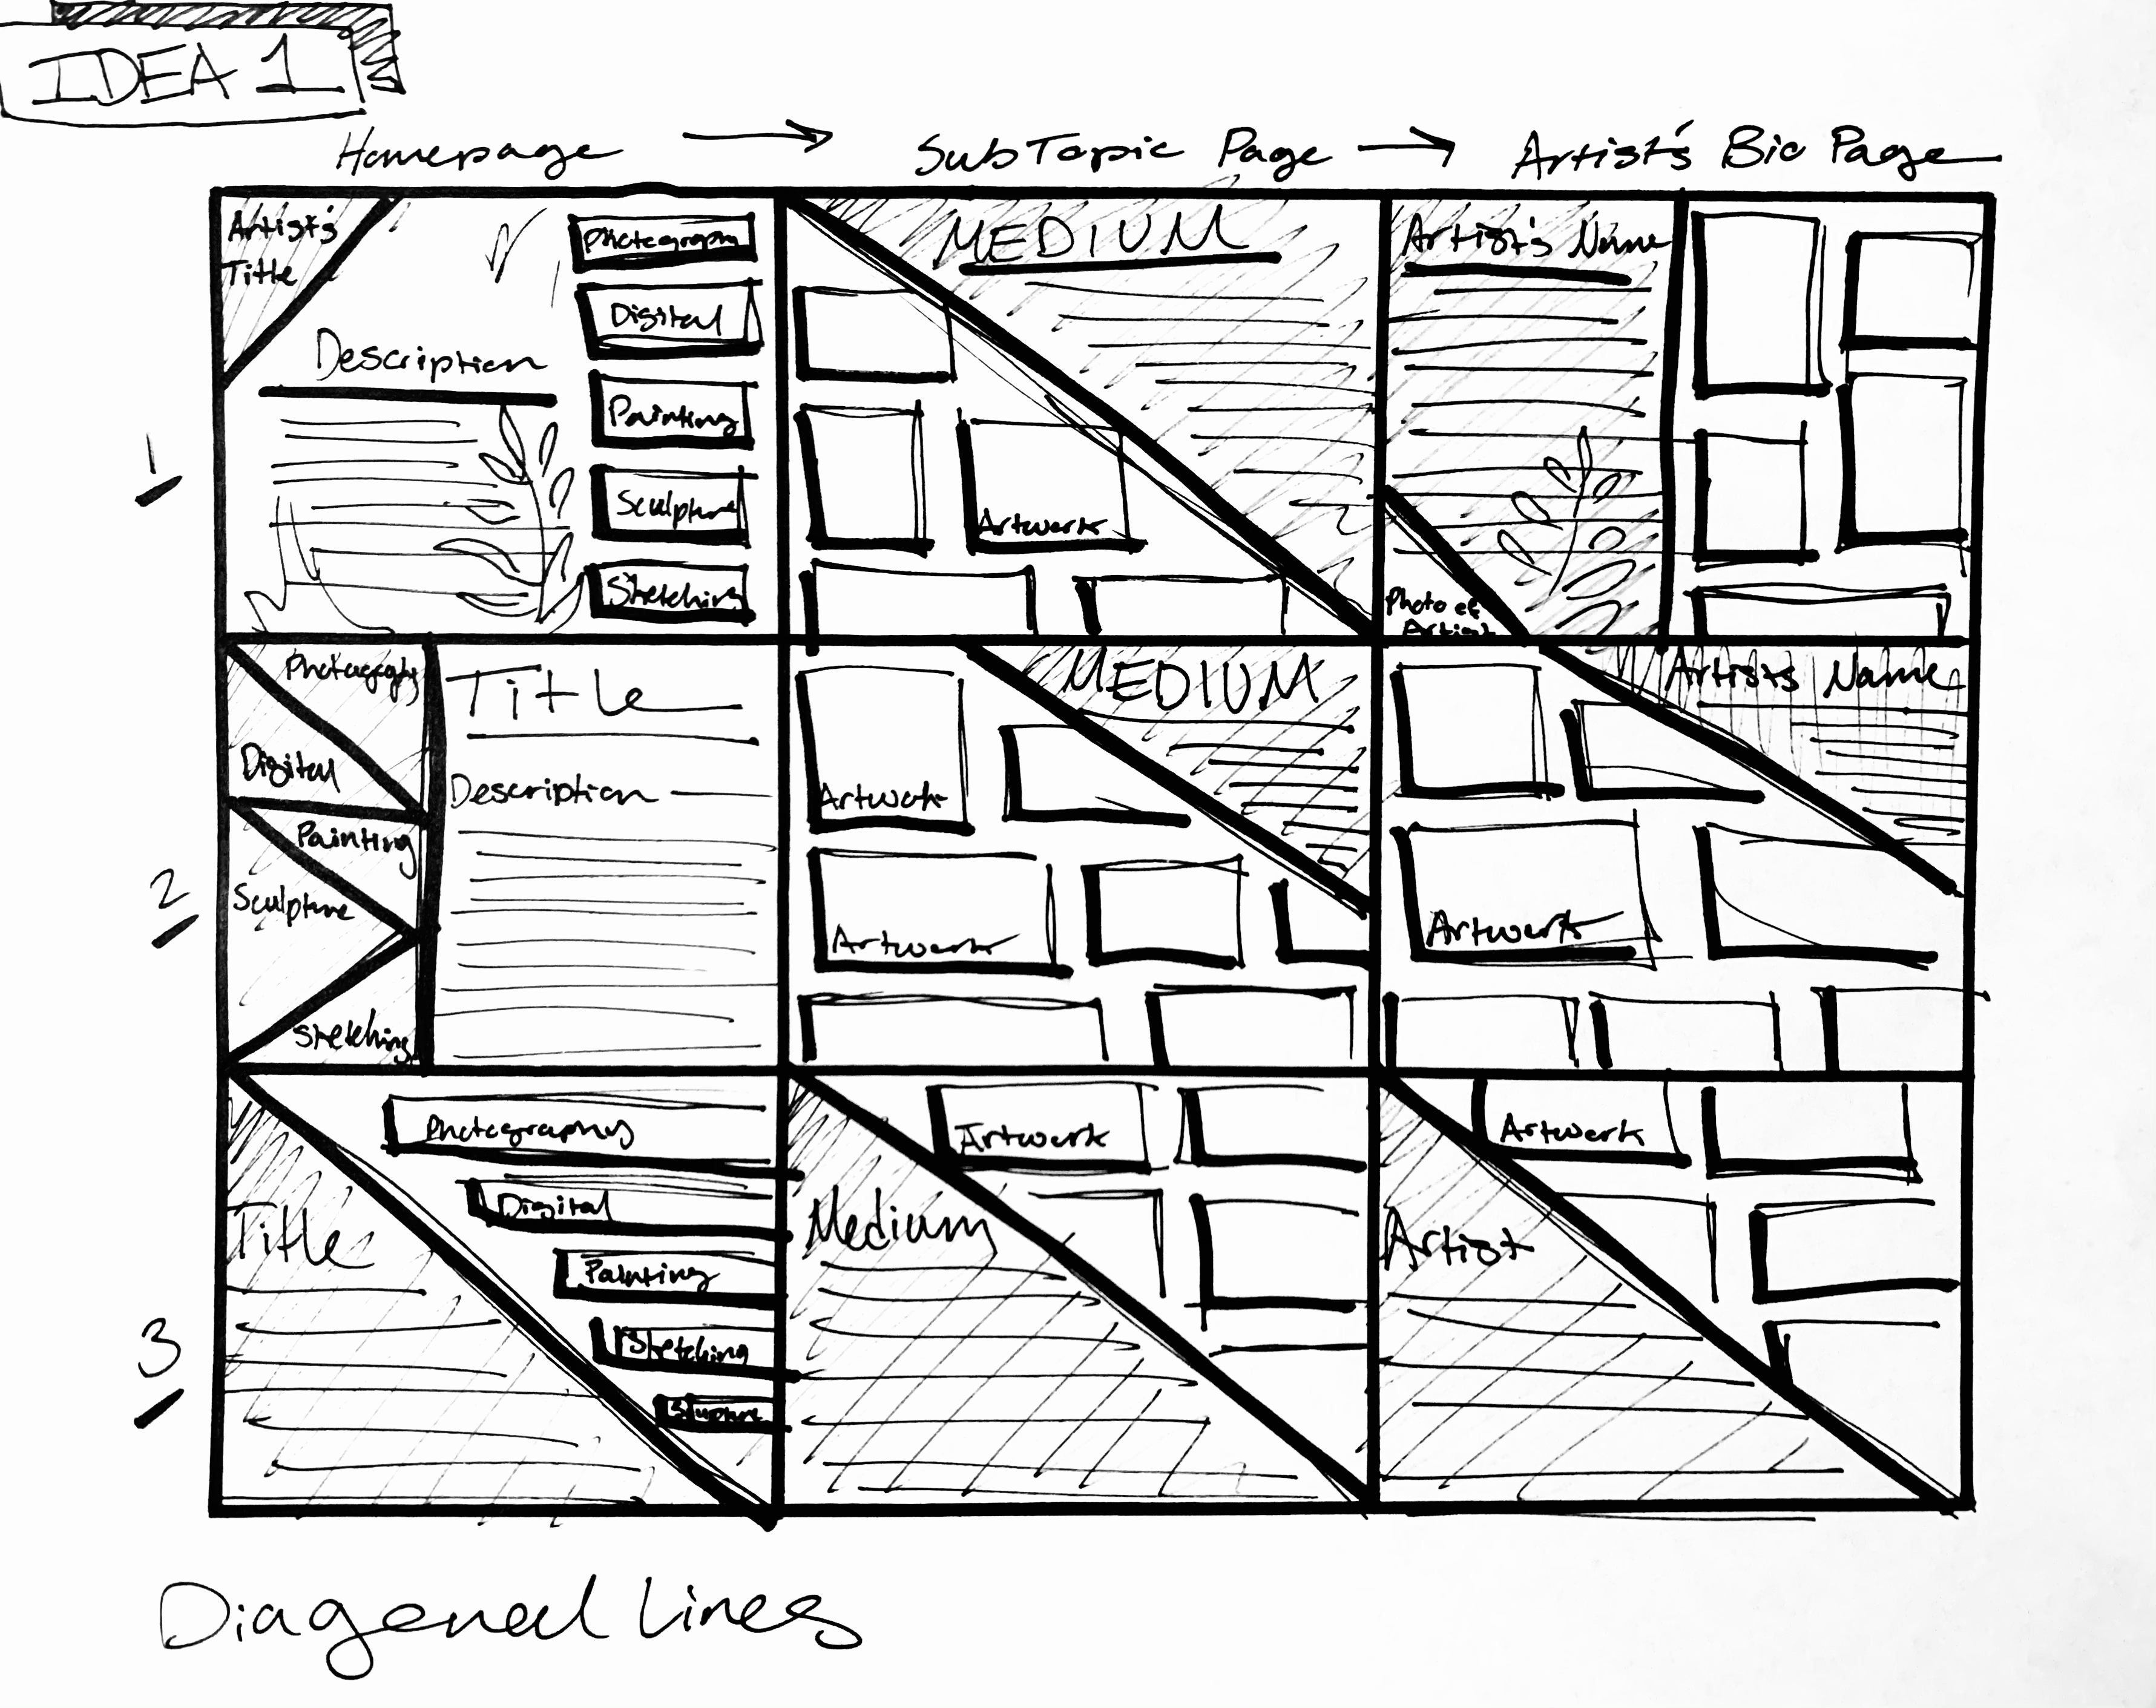 IDEA 1
Homepage → SubTopic Page → Artist's Bio Page
1
Artist's
Title
Description
Photography
Digital
Painting
Sculpture
Sketching
MEDIUM
Artwork
Artist's Name
Photo of
Artist
2
Photography
Digital
Painting
Sculpture
Sketching
Title
Description
MEDIUM
Artwork
Artwork
Artists Name
Artwork
3
Title
Photography
Digital
Painting
Sketching
Sculpture
Medium
Artwork
Artist
Artwork
Diagonal Lines